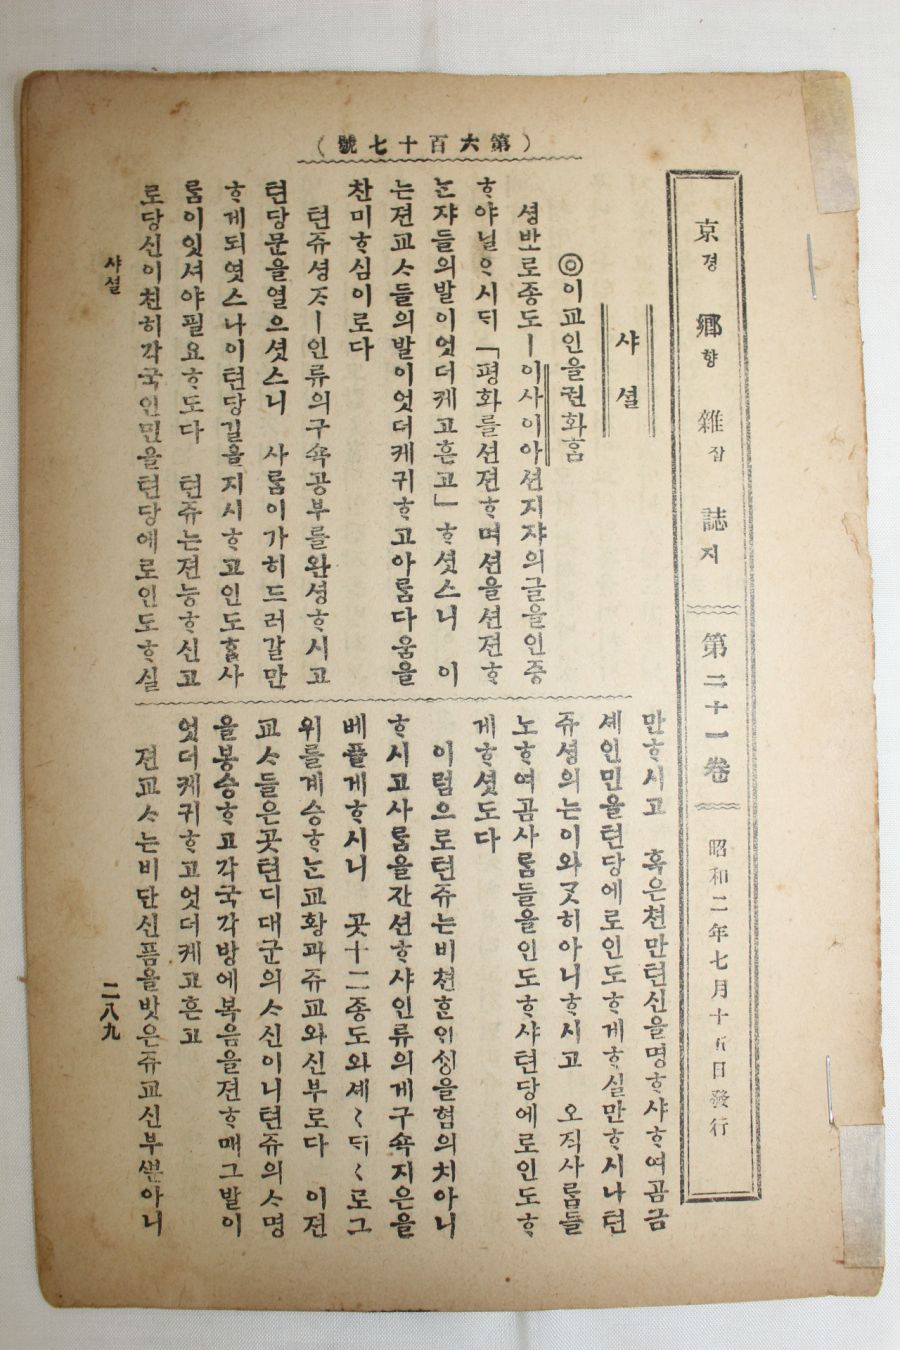 (第六百十七號)
京경 鄕향 雜잡 誌지 第二十一卷 昭和二年七月十五日發行
샤셜
◎이교인을권화홈
셩반로종도ㅣ이사이아션지쟈의글을인증
ᄒᆞ야닐ᄋᆞ시ᄃᆡ「평화를션젼ᄒᆞ며션을션젼ᄒᆞ
ᄂᆞᆫ쟈들의발이엇더케고흔고」ᄒᆞ셧스니 이
는젼교ᄉᆞ들의발이엇더케귀ᄒᆞ고아ᄅᆞᆷ다움을
찬미ᄒᆞ심이로다
텬쥬셩ᄌᆞㅣ인류의구쇽공부를완셩ᄒᆞ시고
텬당문을열으셧스니 사ᄅᆞᆷ이가히드러갈만
ᄒᆞ게되엿스나이텬당길을지시ᄒᆞ고인도ᄒᆞᆯ사
ᄅᆞᆷ이잇셔야필요ᄒᆞ도다 텬쥬는젼능ᄒᆞ신고
로당신이친히각국인민을텬당에로인도ᄒᆞ실
만ᄒᆞ시고 혹은쳔만텬신을명ᄒᆞ샤ᄒᆞ여곰금
셰인민을텬당에로인도ᄒᆞ게ᄒᆞ실만ᄒᆞ시나텬
쥬셩의는이와ᄀᆞᆺ히아니ᄒᆞ시고 오직사ᄅᆞᆷ들
노ᄒᆞ여곰사ᄅᆞᆷ들을인도ᄒᆞ샤텬당에로인도ᄒᆞ
게ᄒᆞ셧도다
이럼으로텬쥬는비쳔ᄒᆞᆫ인셩을혐의치아니
ᄒᆞ시고사ᄅᆞᆷ을잔션ᄒᆞ샤인류의게구쇽지은을
베플게ᄒᆞ시니 곳十二종도와셰〱ᄃᆡ〱로그
위를계승ᄒᆞᄂᆞᆫ교황과쥬교와신부로다 이젼
교ᄉᆞ들은곳텬디대군의ᄉᆞ신이니텬쥬의ᄉᆞ명
을봉승ᄒᆞ고각국각방에복음을젼ᄒᆞ매그발이
엇더케귀ᄒᆞ고엇더케고흔고
젼교ᄉᆞ는비단신픔을밧은쥬교신부ᄲᅮᆫ아니
샤셜
二八九